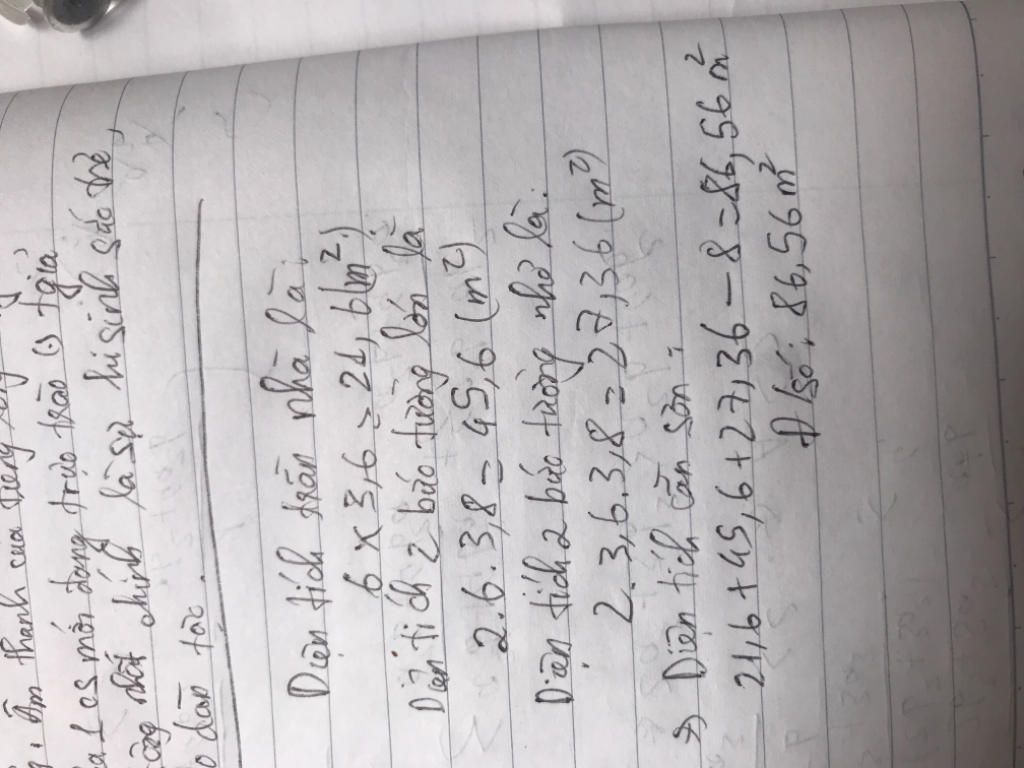 Âm thanh của tiếng
1 cs mới đang trực trào (s tgia
đất chính là sự hi sinh gáo trẻ,
dân tộc.
Diện tích trần nhà là:
6 x 3,6 = 21,6(m²)
Diện tích 2 bức tường lớn là
2.6.3,8 = 45,6 (m²)
Diện tích 2 bức tường nhỏ là:
2.3,6.3,8 = 27,36 (m²)
=> Diện tích cần sơn:
21,6 + 45,6 + 27,36 - 8 = 86,56 m²
Đ/số: 86,56 m²